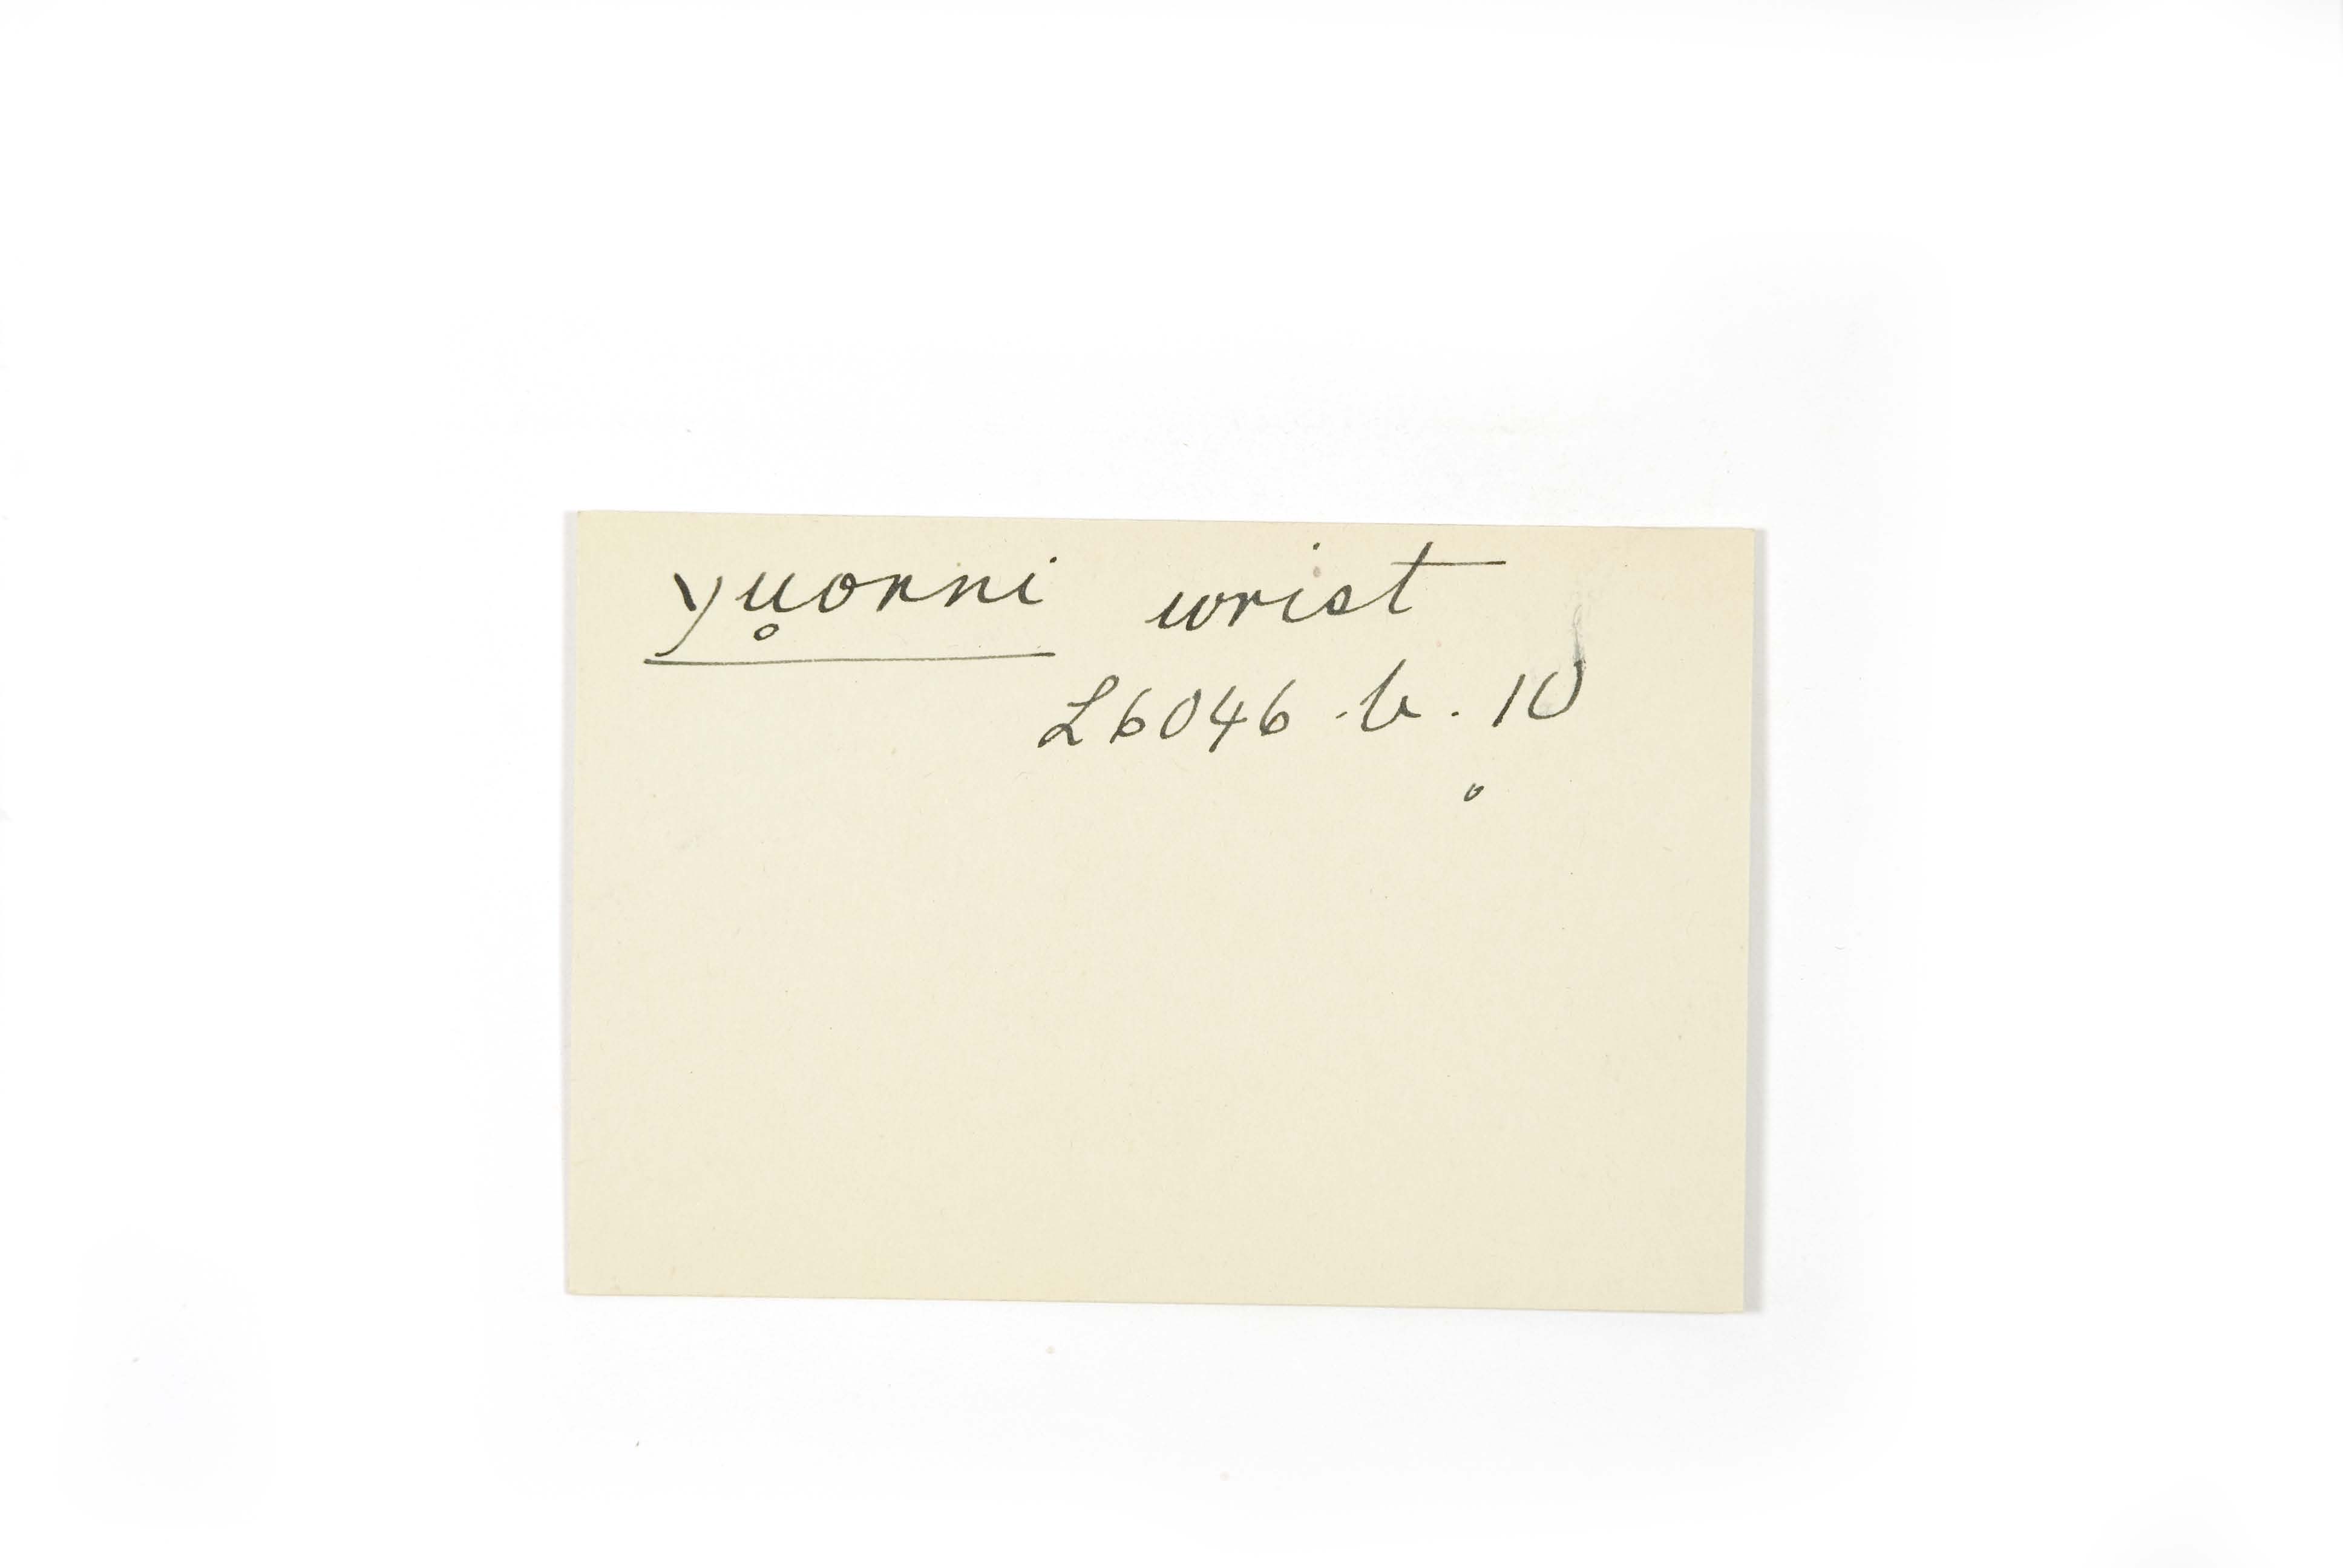 yu̥onni wrist
L6046.b.10